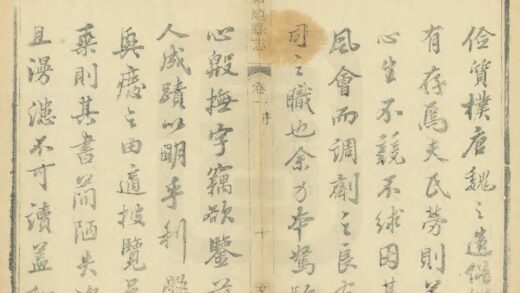 俗質樸唐魏之遺
有存焉夫民勞則善
心生不競不絿因其
風會而調劑之良有
司之職也余力本駑
縣志 卷一 序 十
心殷撫字竊欲鑒前
人成蹟以明乎利
興廢之由適披覽
乘則其書簡陋失
且漫漶不可讀蓋